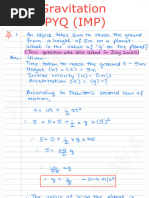 Gravitation
PYQ (IMP)
Q.1 An object takes 5m to reach the ground
from a height of 5m on a planet.
What is the value of 'g' on the planet?
(This question was also asked in July 2020)
Ans: Given:
Time to reach the ground =
Height (h) = (s) = 5m
Initial velocity (u) = 0m/s
Acceleration (a) = (g)
According to Newton's second law of
motion,
s = ut + 1/2 at²
∴ 5 = 0 × 5 + 1/2 × g ×
∴ 5 =
g = 0.4 m/s²
∴ The value of 'g' on the planet is